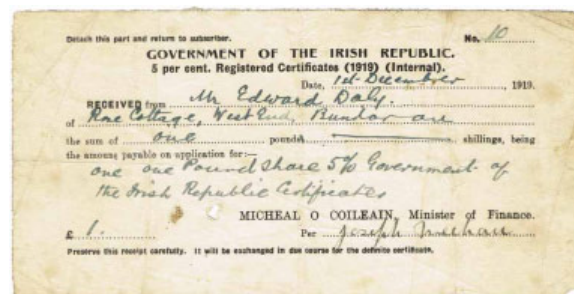 Detach this part and return to subscriber. No. 10
GOVERNMENT OF THE IRISH REPUBLIC.
5 per cent. Registered Certificates (1919) (Internal).
Date, 1st December 1919.
RECEIVED from Mr Edward Daly.
of Rose Cottage, West End, Bundoran
the sum of one pounds shillings, being
the amount payable on application for:—
one one Pound Share 5% Government of
the Irish Republic Certificates
MICHEAL O COILEAIN, Minister of Finance.
£ 1. Per Joseph
Preserve this receipt carefully. It will be exchanged in due course for the definite certificate.